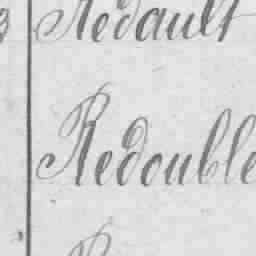 Redault
Redouble